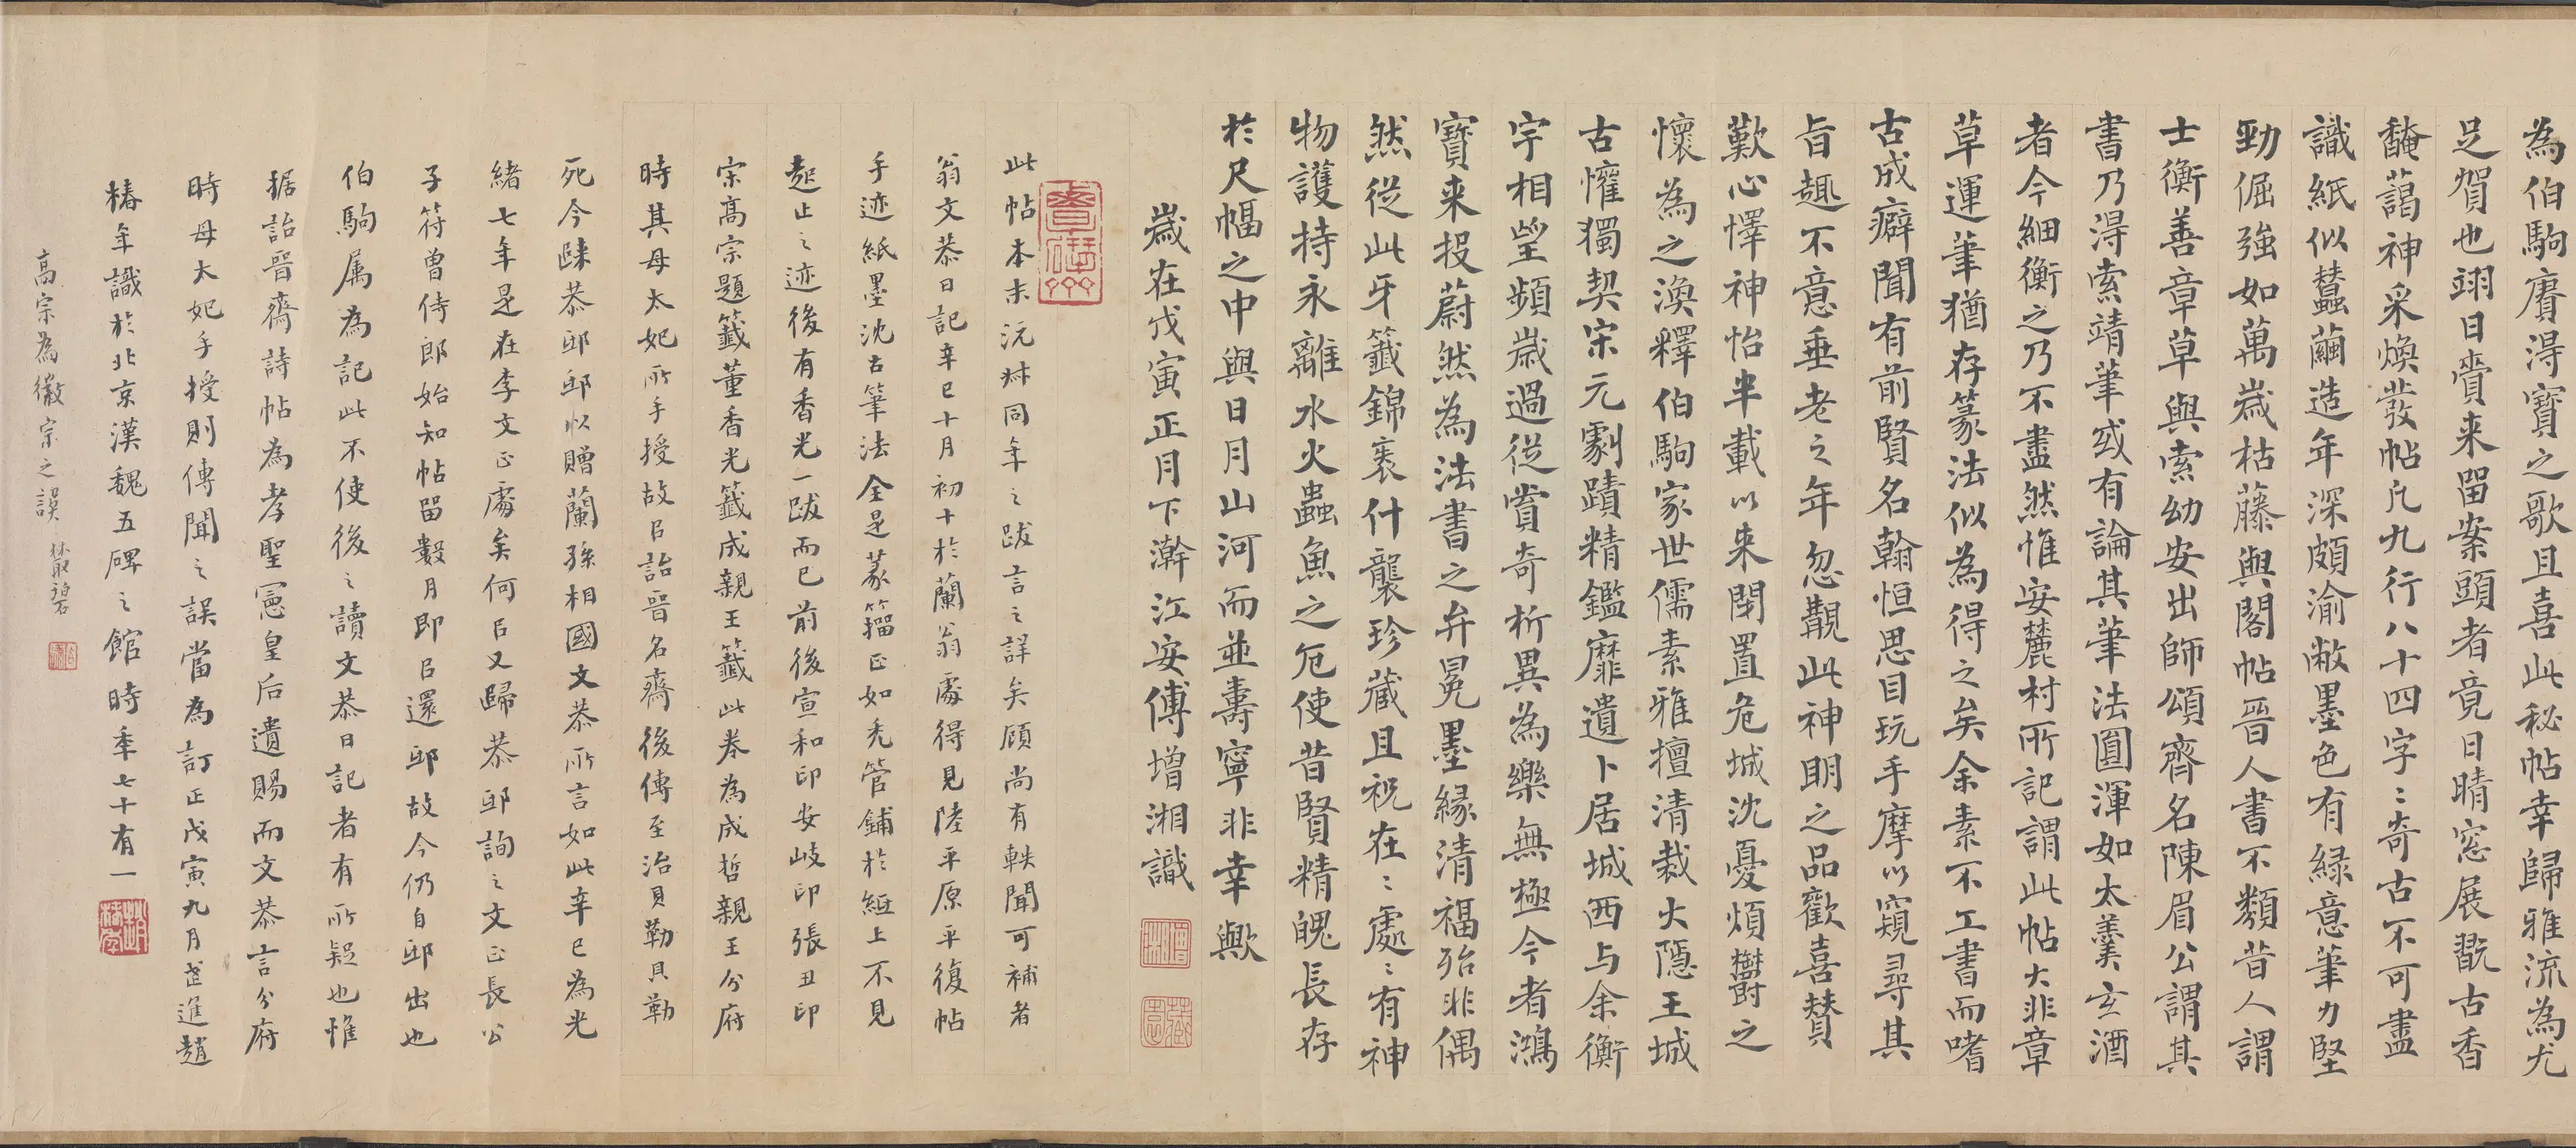 為伯駒賡得寶之歌且喜此秘帖幸歸雅流為尤
足賀也翊日賫来留案頭者竟日晴窓展翫古香
馣藹神采煥發帖凡九行八十四字〻奇古不可盡
識紙似蠶繭造年深頗渝敝墨色有緑意筆力堅
勁倔強如萬歲枯藤與閣帖晉人書不類昔人謂
士衡善章草與索幼安出師頌齊名陳眉公謂其
書乃得索靖筆或有論其筆法圓渾如太羹玄酒
者今細衡之乃不盡然惟安麓村所記謂此帖大非章
草運筆猶存篆法似為得之矣余素不工書而嗜
古成癖聞有前賢名翰恒思目玩手摩以窺尋其
旨趣不意垂老之年忽觀此神明之品歡喜賛
歎心懌神怡半載以来閉置危城沈憂煩鬱之
懷為之渙釋伯駒家世儒素雅擅清裁大隱王城
古懽獨契宋元劇蹟精鑑靡遺卜居城西与余衡
宇相望頻歲過從賞奇析異為樂無極今者鴻
寶来投蔚然為法書之弁冕墨緣清福殆非偶
然從此牙籤錦裹什襲珍藏且祝在〻處〻有神
物護持永離水火蟲魚之厄使昔賢精魄長存
於尺幅之中與日月山河而並壽寧非幸歟
歲在戊寅正月下澣江安傅增湘識
此帖本末沅叔同年之跋言之詳矣顧尚有軼聞可補者
翁文恭日記辛巳十月初十於蘭翁處得見陸平原平復帖
手迹紙墨沈古筆法全是篆籀正如禿管鋪於紙上不見
起止之迹後有香光一跋而已前後宣和印安岐印張丑印
宋高宗題籤董香光籤成親王籤此卷為成哲親王分府
時其母太妃所手授故以詒晉名齋後傳至治貝勒貝勒
死今歸恭邸邸以贈蘭孫相國文恭所言如此辛巳為光
緒七年是在李文正處矣何以又歸恭邸詢之文正長公
子符曾侍郎始知帖留數月即以還邸故今仍自邸出也
伯駒屬為記此不使後之讀文恭日記者有所疑也惟
据詒晉齋詩帖為孝聖憲皇后遺賜而文恭言分府
時母太妃手授則傳聞之誤當為訂正戊寅九月武進趙
椿年識於北京漢魏五碑之館時年七十有一
高宗為徽宗之誤